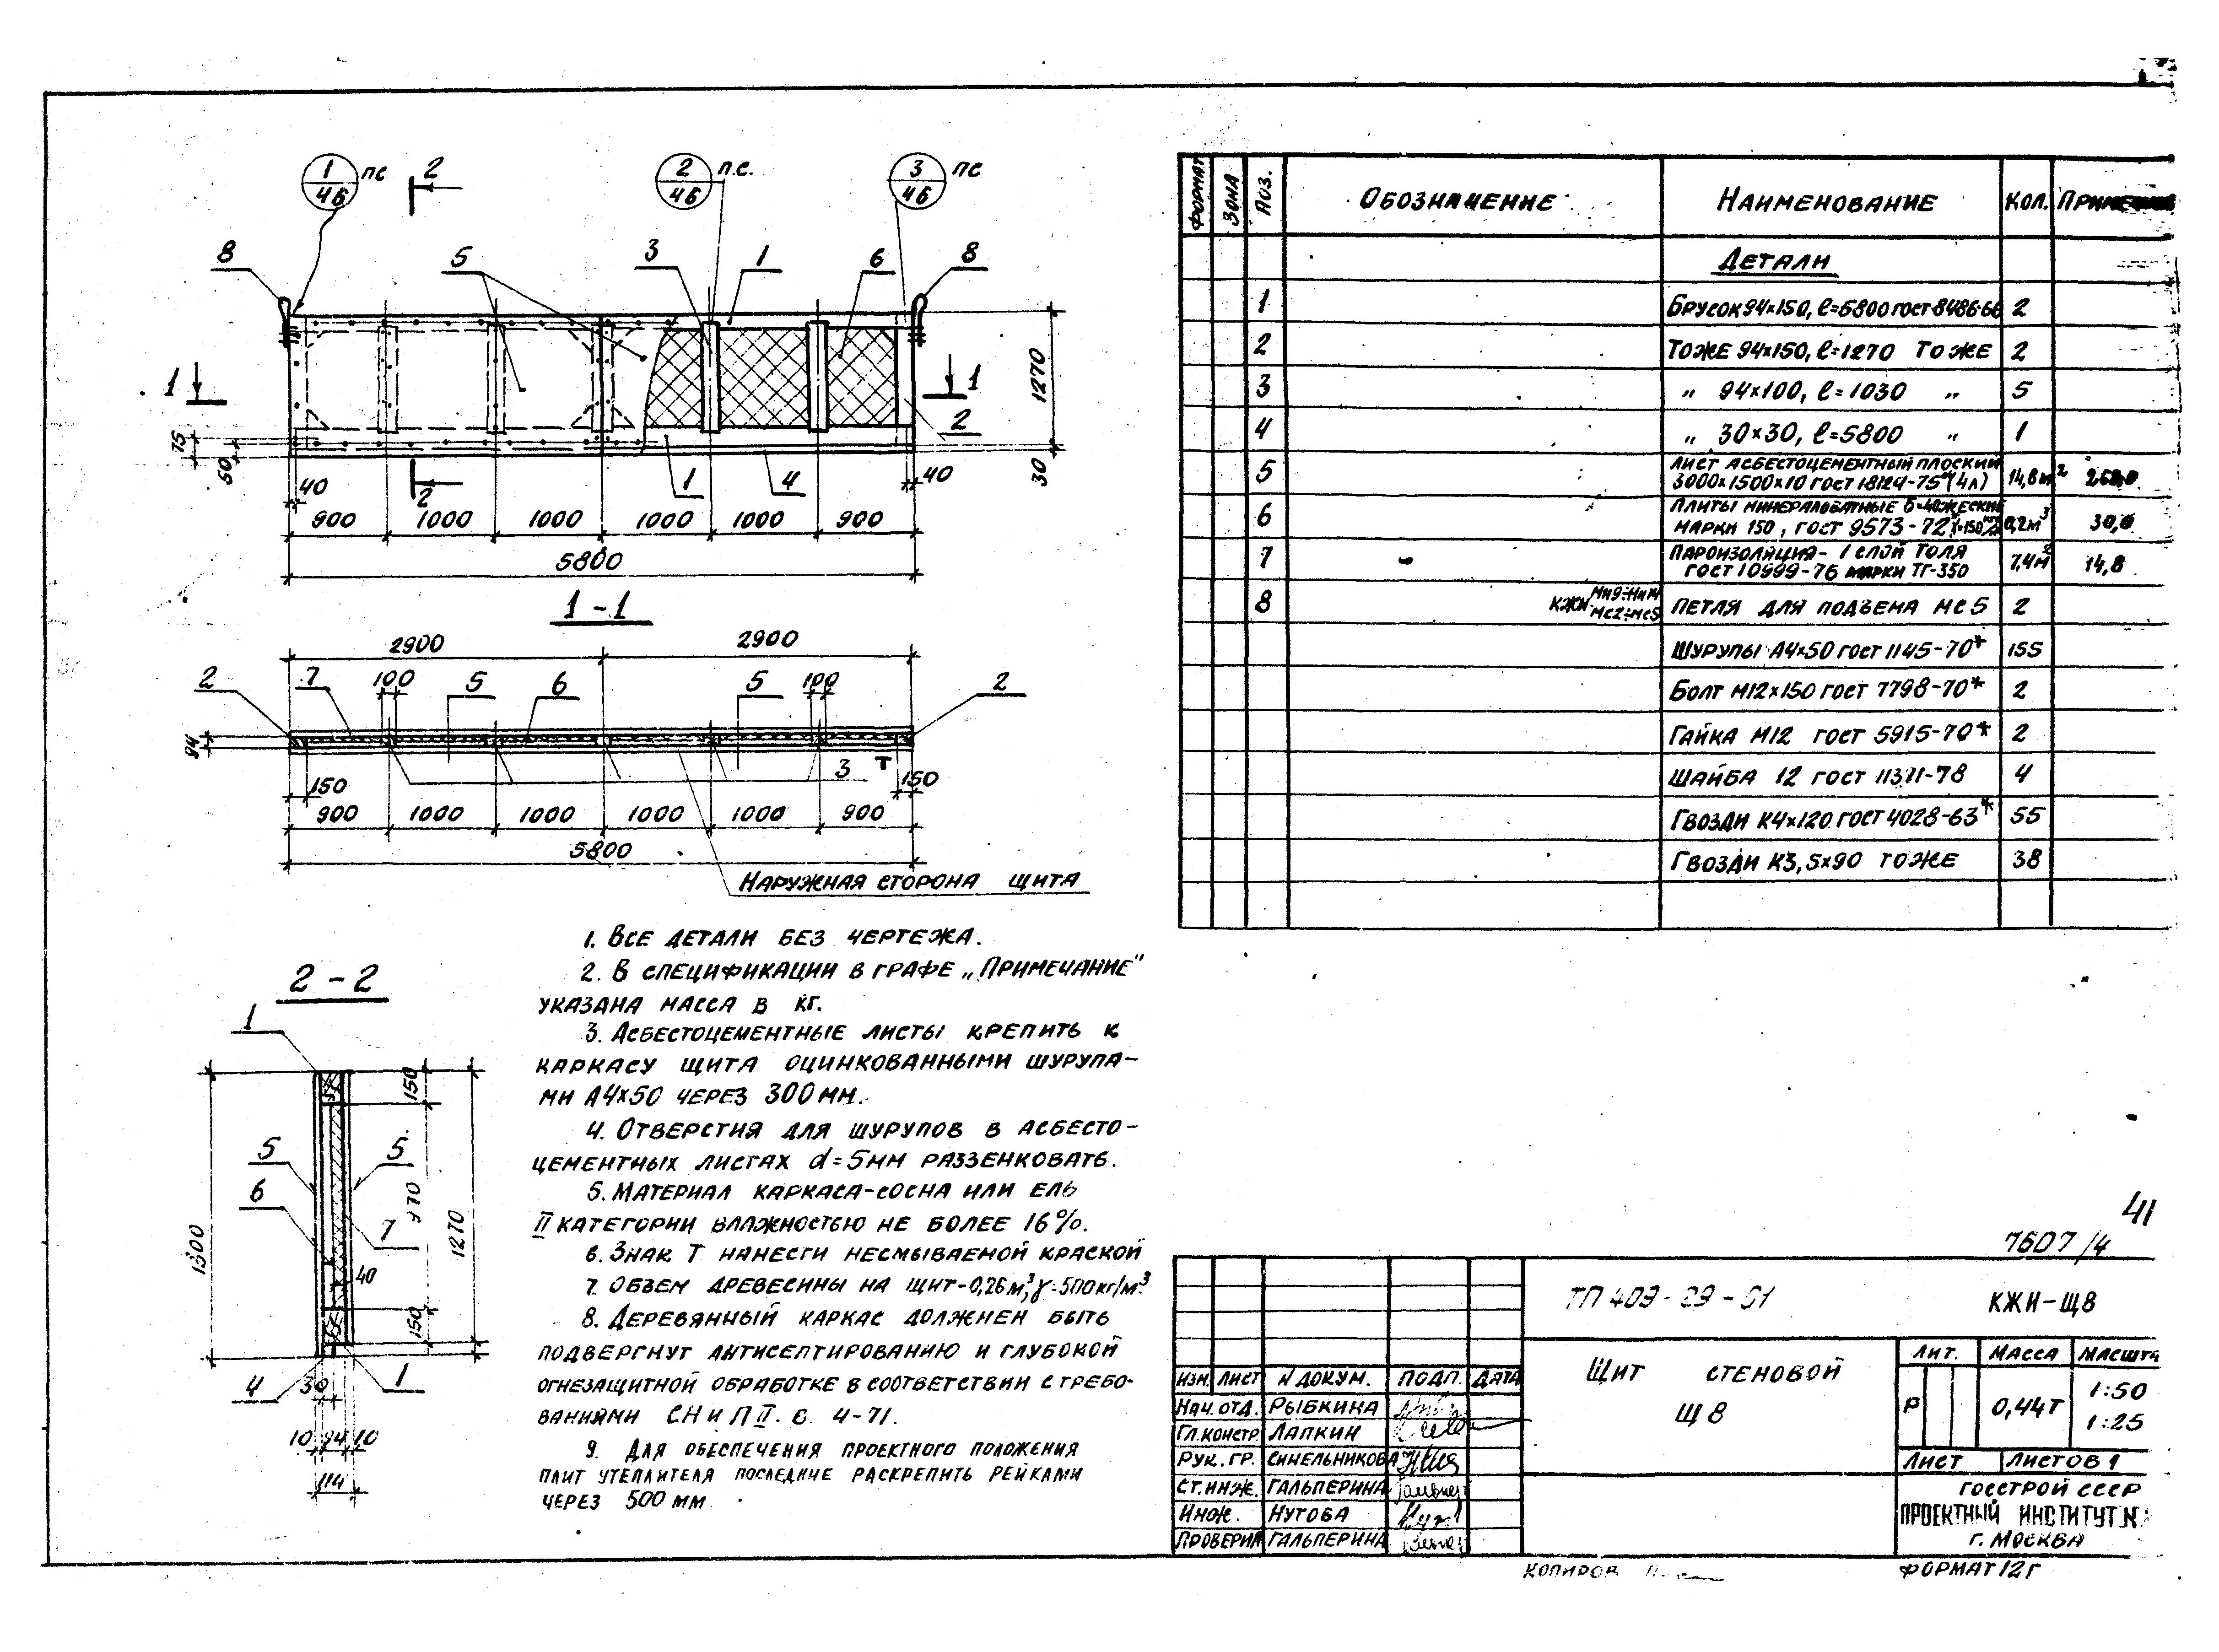 1
46
ПС
2
2
46
П.С.
3
46
ПС
8
5
3
1
6
8
1
1
2
75
50
40
2
1
4
40
1270
30
900
1000
1000
1000
1000
900
5800
1-1
2900
2900
2
7
100
5
6
5
100
2
94
150
3
Т
150
900
1000
1000
1000
1000
900
5800
НАРУЖНАЯ СТОРОНА ЩИТА
2-2
1
150
5
5
6
7
970
1270
1300
40
150
4
30
1
10
94
10
114
1. ВСЕ ДЕТАЛИ БЕЗ ЧЕРТЕЖА.
2. В СПЕЦИФИКАЦИИ В ГРАФЕ „ПРИМЕЧАНИЕ"
УКАЗАНА МАССА В КГ.
3. АСБЕСТОЦЕМЕНТНЫЕ ЛИСТЫ КРЕПИТЬ К
КАРКАСУ ЩИТА ОЦИНКОВАННЫМИ ШУРУПА-
МИ А4×50 ЧЕРЕЗ 300 ММ.
4. ОТВЕРСТИЯ ДЛЯ ШУРУПОВ В АСБЕСТО-
ЦЕМЕНТНЫХ ЛИСТАХ d=5ММ РАЗЗЕНКОВАТЬ.
5. МАТЕРИАЛ КАРКАСА-СОСНА ИЛИ ЕЛЬ
II КАТЕГОРИИ ВЛАЖНОСТЬЮ НЕ БОЛЕЕ 16%.
6. ЗНАК Т НАНЕСТИ НЕСМЫВАЕМОЙ КРАСКОЙ
7. ОБЪЕМ ДРЕВЕСИНЫ НА ЩИТ-0,26 м³, γ=500кг/м³
8. ДЕРЕВЯННЫЙ КАРКАС ДОЛЖЕН БЫТЬ
ПОДВЕРГНУТ АНТИСЕПТИРОВАНИЮ И ГЛУБОКОЙ
ОГНЕЗАЩИТНОЙ ОБРАБОТКЕ В СООТВЕТСТВИИ С ТРЕБО-
ВАНИЯМИ СНиП II. В. 4-71.
9. ДЛЯ ОБЕСПЕЧЕНИЯ ПРОЕКТНОГО ПОЛОЖЕНИЯ
ПЛИТ УТЕПЛИТЕЛЯ ПОСЛЕДНИЕ РАСКРЕПИТЬ РЕЙКАМИ
ЧЕРЕЗ 500 ММ.
ФОРМАТ ЗОНА ПОЗ. ОБОЗНАЧЕНИЕ НАИМЕНОВАНИЕ КОЛ.
ДЕТАЛИ
1 БРУСОК 94×150, ℓ=5800 ГОСТ 8486-66 2
2 ТОЖЕ 94×150, ℓ=1270 ТОЖЕ 2
3 „ 94×100, ℓ=1030 „ 5
4 „ 30×30, ℓ=5800 „ 1
5 ЛИСТ АСБЕСТОЦЕМЕНТНЫЙ ПЛОСКИЙ
3000×1500×10 ГОСТ 18124-75* (4Л) 14,8 м²
6 ПЛИТЫ МИНЕРАЛОВАТНЫЕ δ=40 ЖЕСКИЕ
МАРКИ 150, ГОСТ 9573-72 0,2м³ 30,0
7 ПАРОИЗОЛЯЦИЯ- 1 СЛОЙ ТОЛЯ
ГОСТ 10999-76 МАРКИ ТГ-350 7,4м² 14,8
8 КЖИ МН9÷МН14
МС2÷МС5 ПЕТЛЯ ДЛЯ ПОДЪЕМА МС5 2
ШУРУПЫ А4×50 ГОСТ 1145-70* 155
БОЛТ М12×150 ГОСТ 7798-70* 2
ГАЙКА М12 ГОСТ 5915-70* 2
ШАЙБА 12 ГОСТ 11371-78 4
ГВОЗДИ К4×120 ГОСТ 4028-63* 55
ГВОЗДИ К3,5×90 ТОЖЕ 38
41
7607/4
ТП 409-29-61
КЖИ-Щ8
ЩИТ СТЕНОВОЙ
Щ8
ЛИТ. МАССА
Р 0,44Т 1:50
1:25
ЛИСТ ЛИСТОВ 1
ГОССТРОЙ СССР
ПРОЕКТНЫЙ ИНСТИТУТ N
г. МОСКВА
ИЗМ. ЛИСТ N ДОКУМ. ПОДП. ДАТА
НАЧ. ОТД. РЫБКИНА
ГЛ.КОНСТР. ЛАПКИН
РУК. ГР. СИНЕЛЬНИКОВА
СТ.ИНЖ. ГАЛЬПЕРИНА
ИНЖ. НУТОВА
ПРОВЕРИЛ ГАЛЬПЕРИНА
КОПИРОВ
ФОРМАТ 12Г